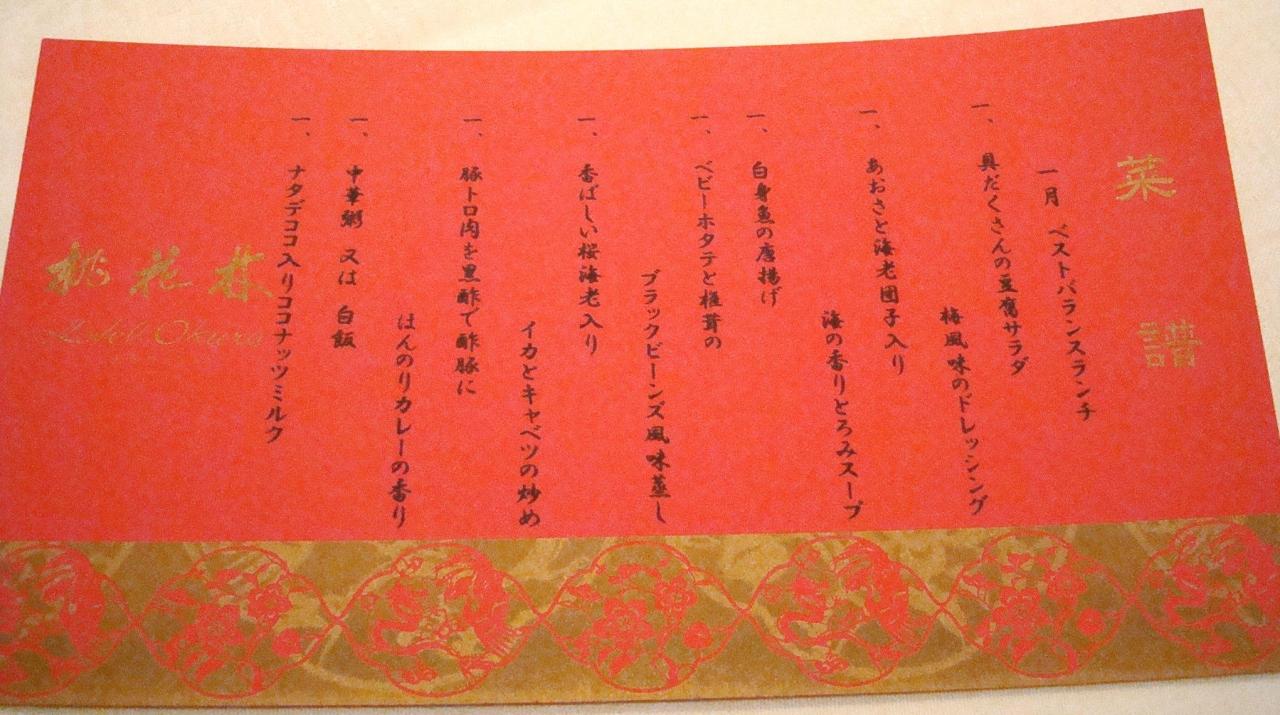 菜譜
一月 ベストバランスランチ
一、具だくさんの豆腐サラダ
梅風味のドレッシング
一、あおさと海老団子入り
海の香りとろみスープ
一、白身魚の唐揚げ
一、ベビーホタテと椎茸の
ブラックビーンズ風味蒸し
一、香ばしい桜海老入り
イカとキャベツの炒め
一、豚トロ肉を黒酢で酢豚に
ほんのりカレーの香り
一、中華粥 又は 白飯
一、ナタデココ入りココナッツミルク
桃花林
Hotel Okura